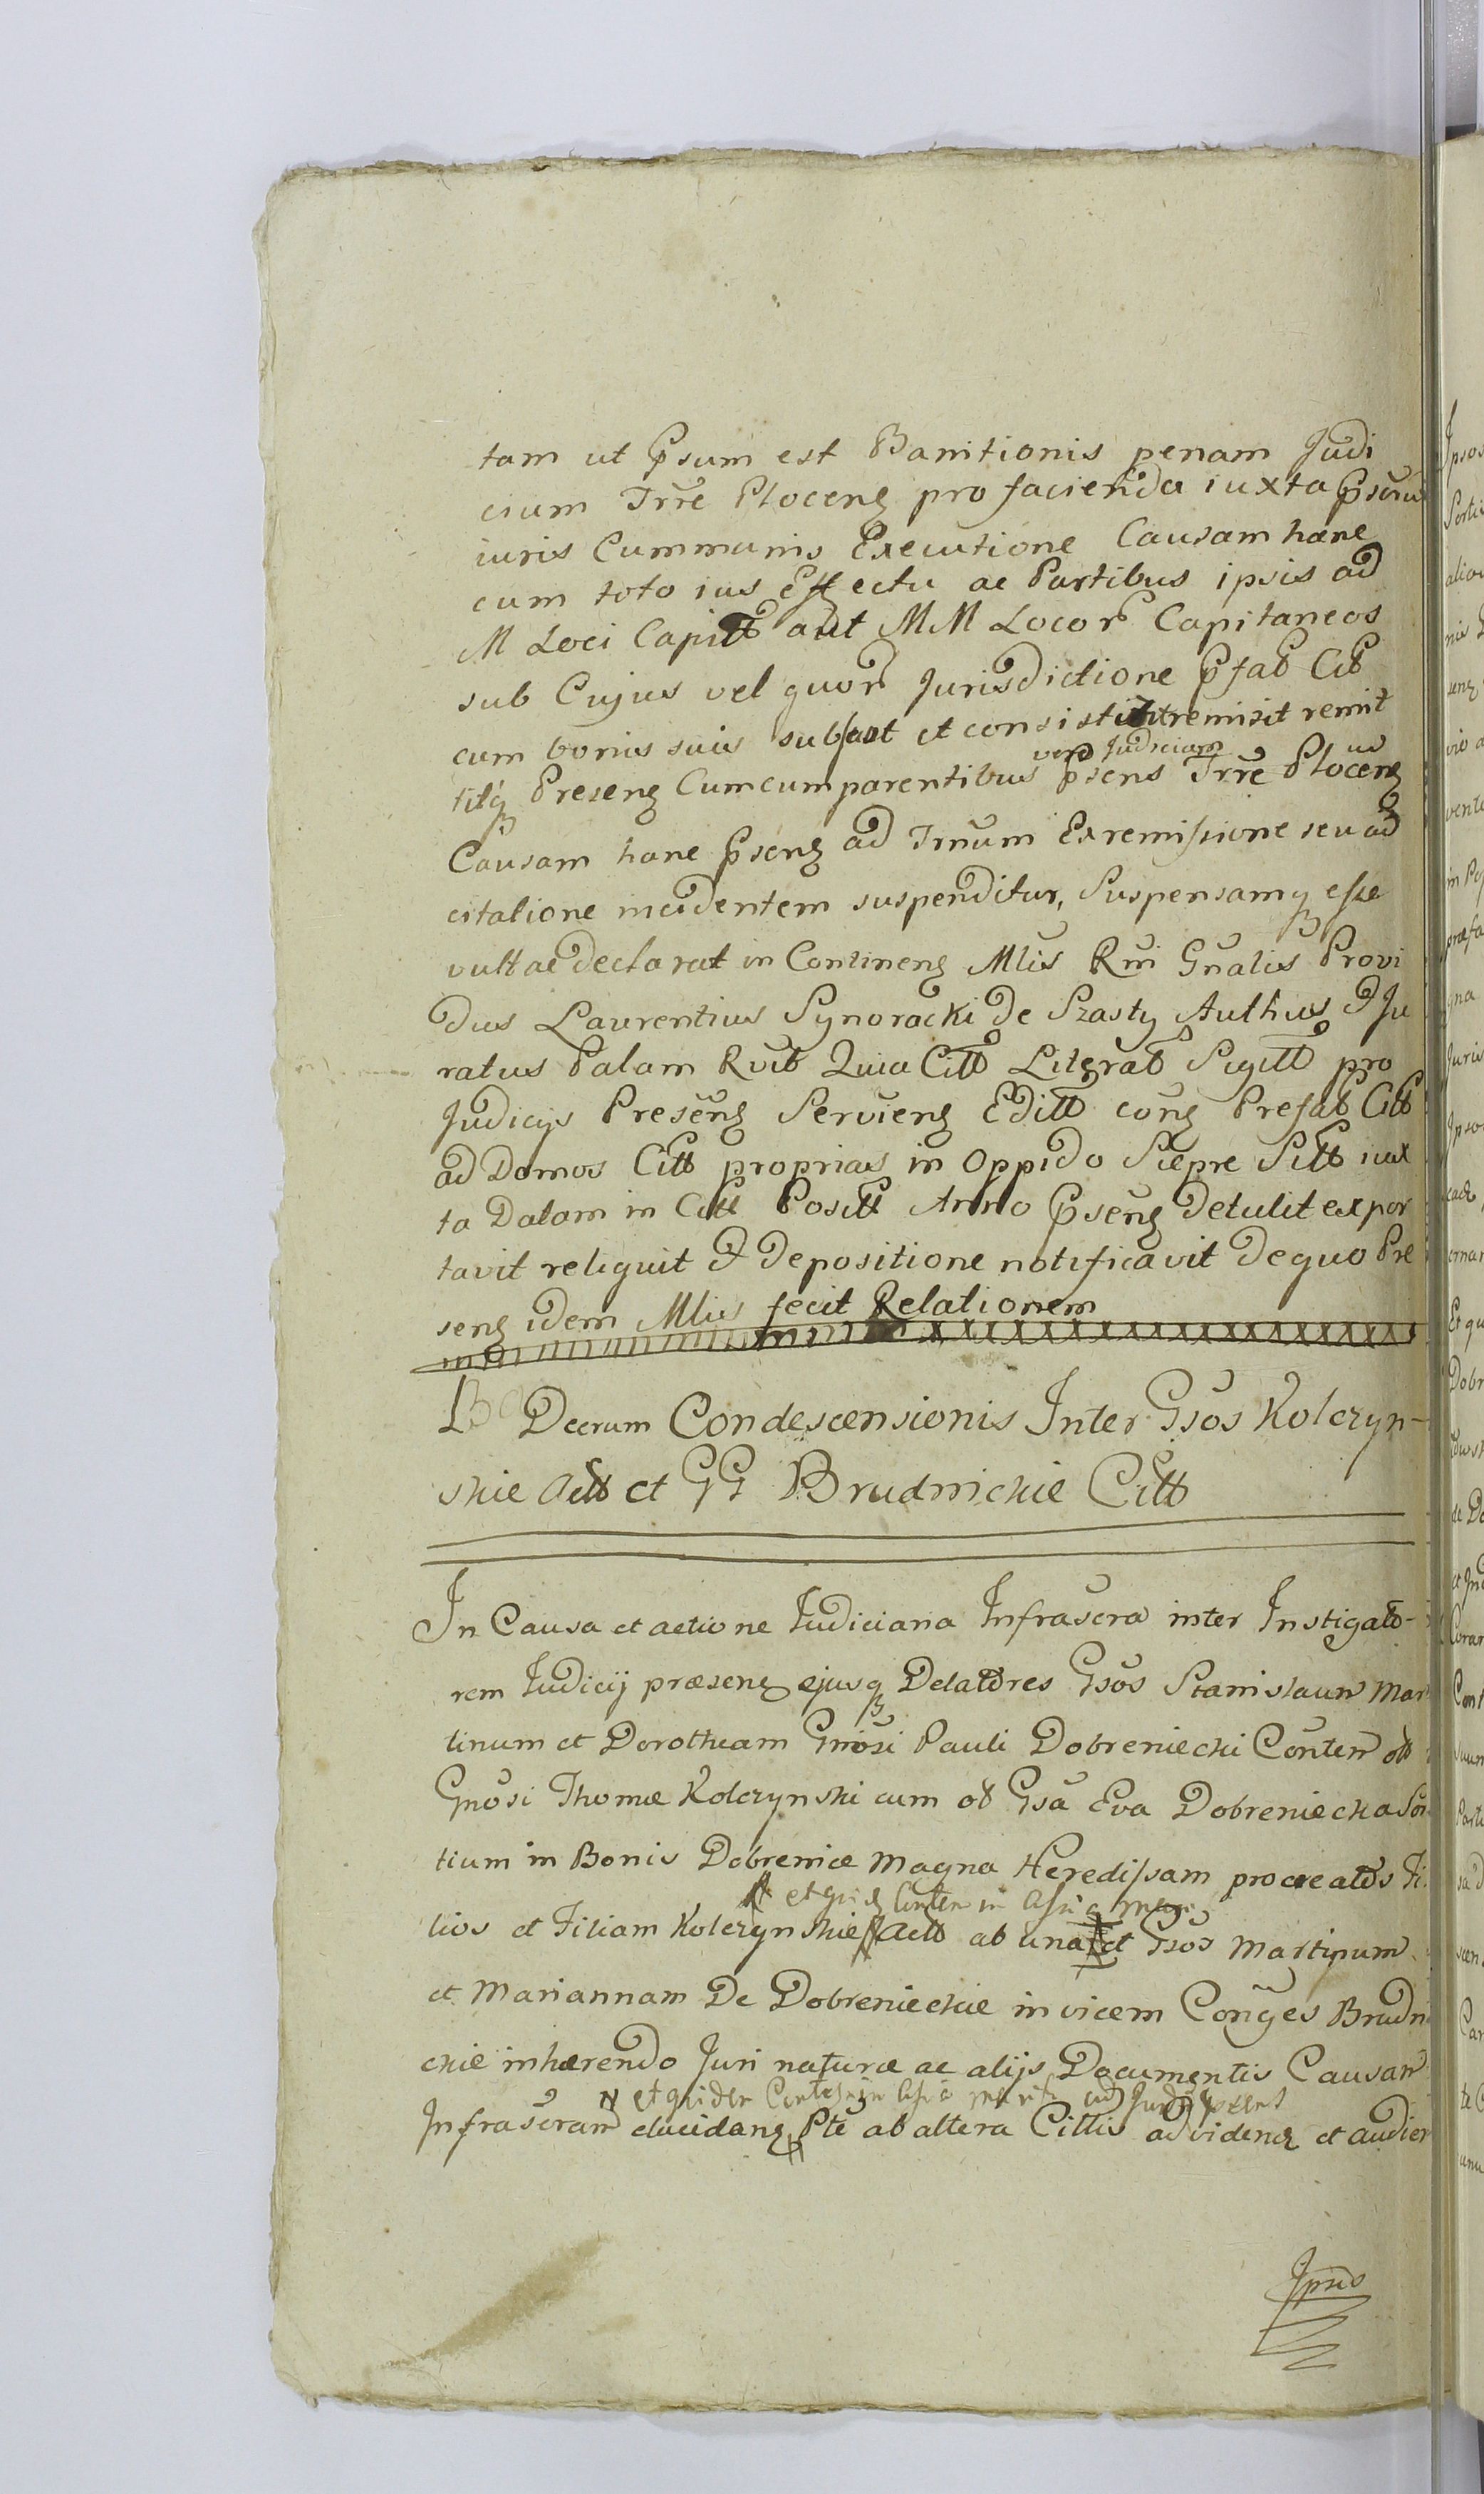 tam ut Psum est Banitionis penam Judi
cium Trre Ploceng pro facienda iuxta Pscrum
iuris Cummunis Executione Causam hanc
cum toto ius Effectu ac Partibus ipsis ad
M Loci Capitt aut MM Locor Capitaneos
sub Cujus vel quor Jurisdictione Pfat Citt
cum bonis suis subsunt et consistunt remisit remit
titq Preseng Cumcumparentibus vero Judicium Psens Trre Ploceng
Causam hanc Pseng ad Trnum Ex remissione seu ad
citatione incidentem suspenditur, Suspensamq esse
vult ac declarat in Contineng Mlis Rni Gnalis Provi
dus Laurentius Synoracki de Szasty Authus & Ju
ratus Palam Rvit Quia Citt Litgrat Sigitt pro
Judicijs Preseng Servieng Editt cong Prefat Citt
ad Domos Citt proprias in Oppido Siepre Sitt iux
ta Datam in Citt Positt Anno Pseng Detulit expor
tavit reliquit & depositione notificavit de quo Pre
seng idem Mlis fecit Relationem
Decrum Condescensionis Inter Gsos Kolczyn-
skie Actt et GG Brudnickie Citt
In Causa et actione Judiciaria Infrascra inter Instigato-
rem Judicij præseng ejusq Delatores Gsos Stanislaum Mar
tinum et Dorotheam Gnosi Pauli Dobreniecki Conten ott
Gnosi Thomæ Kolczynski cum ott Gsa Eva Dobreniecka Sor
tium in Bonis Dobrenice Magna Heredissam procreatos Fi
et quid Conten in
lios et Filiam Kolczynskie Actt ab una et Gsos Martinum
et Mariannam De Dobrenieckie invicem Conges Brudni
ckie inhærendo Juri naturæ ac alijs Documentis Causam
et quidem
Infrascram elucidang Pte ab altera Cittis ad videng et audien
Ipsos